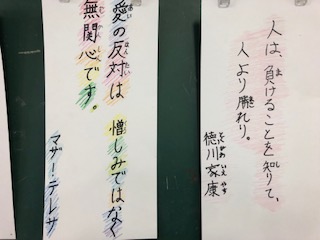 人は、負けることを知りて、
人より勝れり。
徳川家康
愛の反対は 憎しみではなく
無関心です。
マザー・テレサ